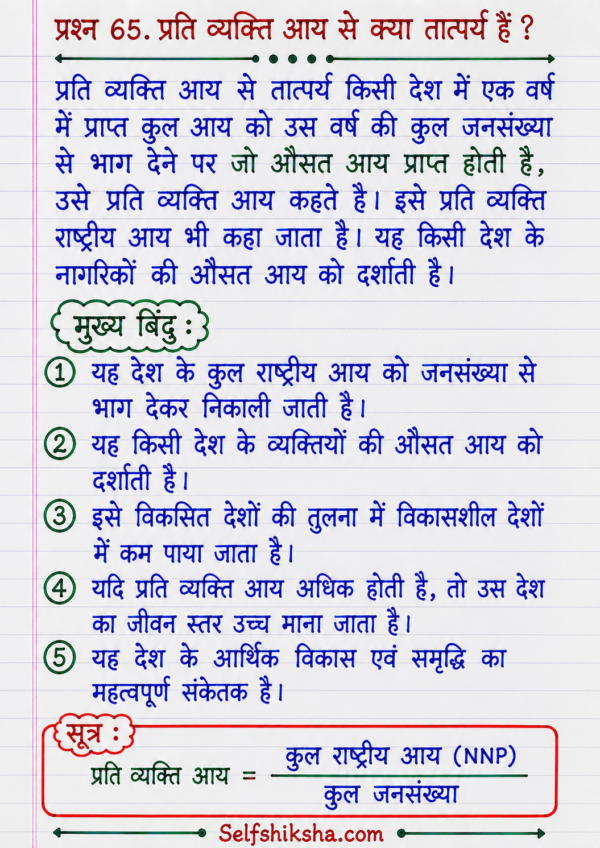 प्रश्न 65. प्रति व्यक्ति आय से क्या तात्पर्य हैं ?
प्रति व्यक्ति आय से तात्पर्य किसी देश में एक वर्ष
में प्राप्त कुल आय को उस वर्ष की कुल जनसंख्या
से भाग देने पर जो औसत आय प्राप्त होती है,
उसे प्रति व्यक्ति आय कहते है। इसे प्रति व्यक्ति
राष्ट्रीय आय भी कहा जाता है। यह किसी देश के
नागरिकों की औसत आय को दर्शाती है।
मुख्य बिंदु :
1 यह देश के कुल राष्ट्रीय आय को जनसंख्या से
भाग देकर निकाली जाती है।
2 यह किसी देश के व्यक्तियों की औसत आय को
दर्शाती है।
3 इसे विकसित देशों की तुलना में विकासशील देशों
में कम पाया जाता है।
4 यदि प्रति व्यक्ति आय अधिक होती है, तो उस देश
का जीवन स्तर उच्च माना जाता है।
5 यह देश के आर्थिक विकास एवं समृद्धि का
महत्वपूर्ण संकेतक है।
सूत्र :
कुल राष्ट्रीय आय (NNP)
प्रति व्यक्ति आय =
कुल जनसंख्या
Selfshiksha.com